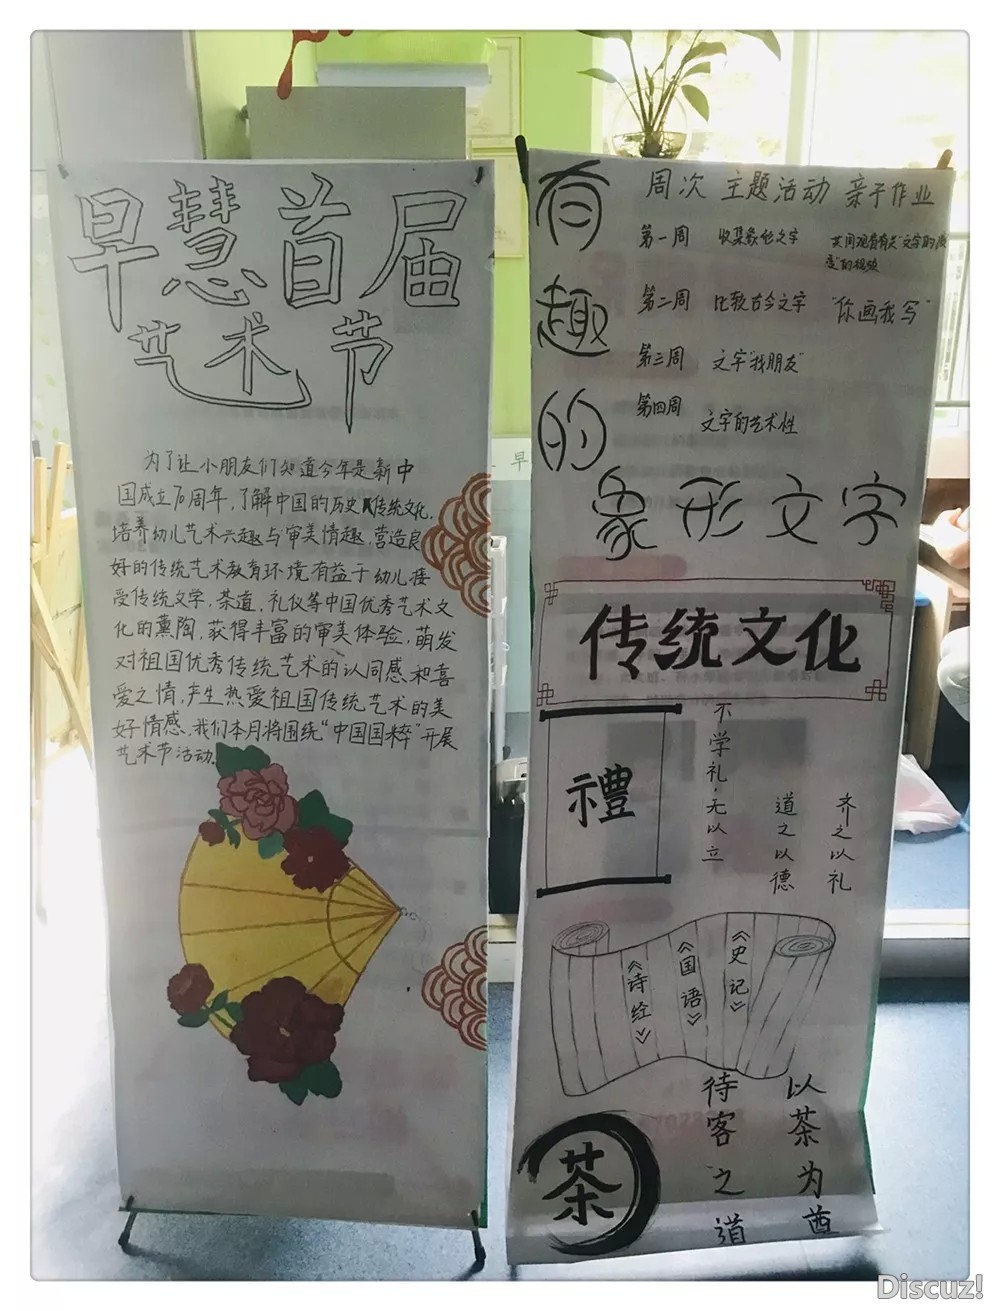 早慧首届
艺术节
为了让小朋友们知道今年是新中
国成立70周年，了解中国的历史传统文化，
培养幼儿艺术兴趣与审美情趣，营造良
好的传统艺术教育环境有益于幼儿接
受传统文学、茶道，礼仪等中国优秀艺术文
化的熏陶，获得丰富的审美体验，萌发
对祖国优秀传统艺术的认同感和喜
爱之情，产生热爱祖国传统艺术的美
好情感，我们本月将围绕“中国国粹”开展
艺术节活动。
有趣的
象形文字
周次 主题活动 亲子作业
第一周 收集象形文字 共同观看有关“文字的演
变”的视频
第二周 比较古今文字 “你画我写”
第三周 文字“找朋友”
第四周 文字的艺术性
传统文化
禮
不学礼，无以立
道之以德
齐之以礼
《诗经》
《国语》
《史记》
茶
以茶为酋
待客之道
早
Discuz!